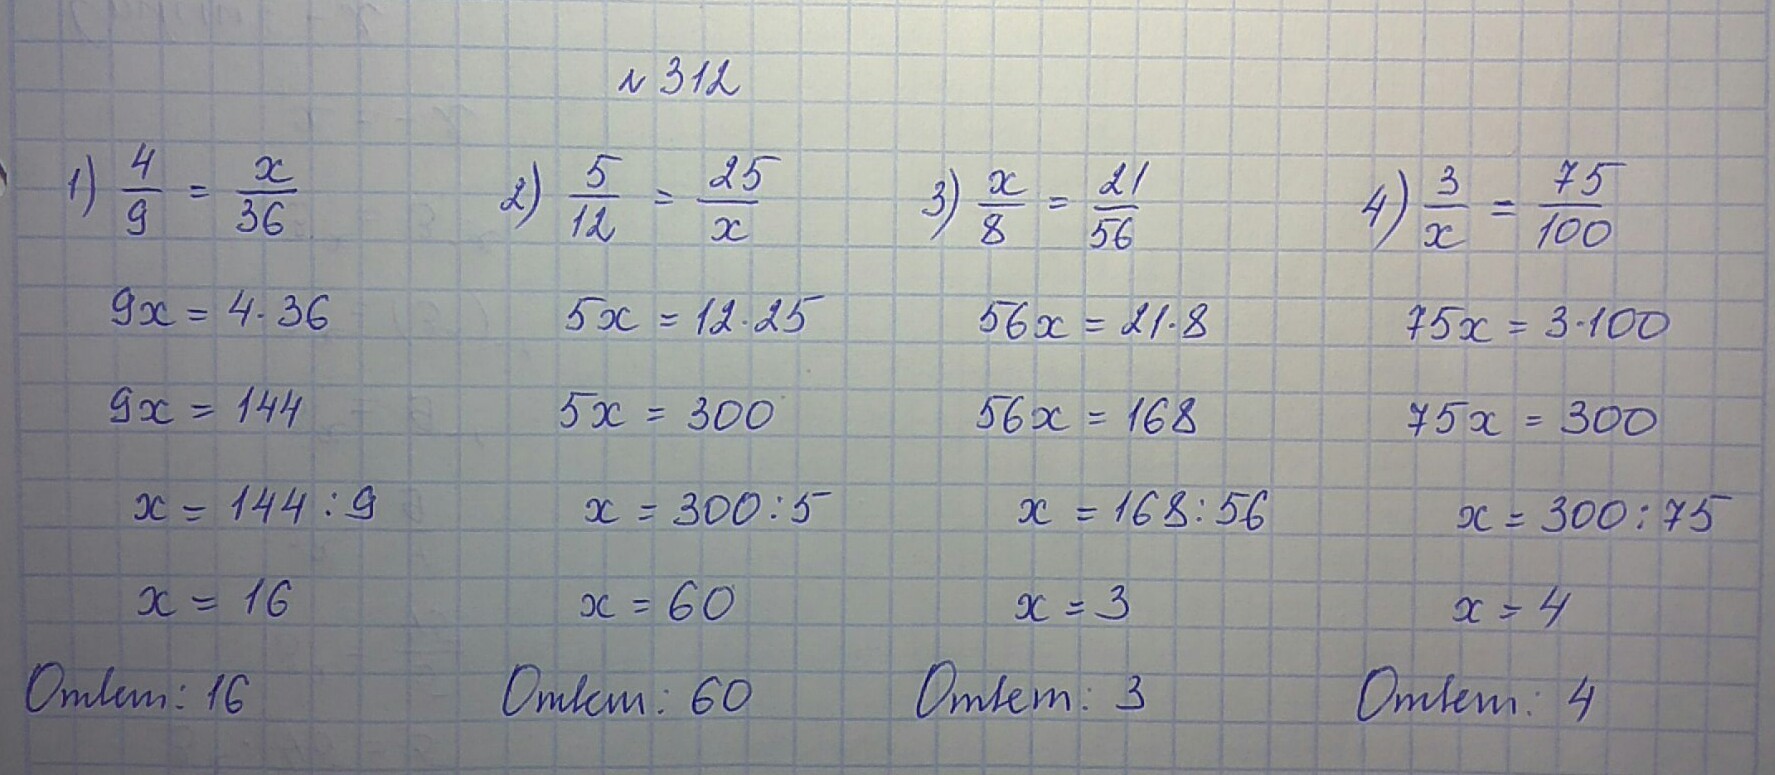 № 312
1) 4/9 = x/36
9x = 4·36
9x = 144
x = 144 : 9
x = 16
Ответ: 16
2) 5/12 = 25/x
5x = 12·25
5x = 300
x = 300 : 5
x = 60
Ответ: 60
3) x/8 = 21/56
56x = 21·8
56x = 168
x = 168 : 56
x = 3
Ответ: 3
4) 3/x = 75/100
75x = 3·100
75x = 300
x = 300 : 75
x = 4
Ответ: 4